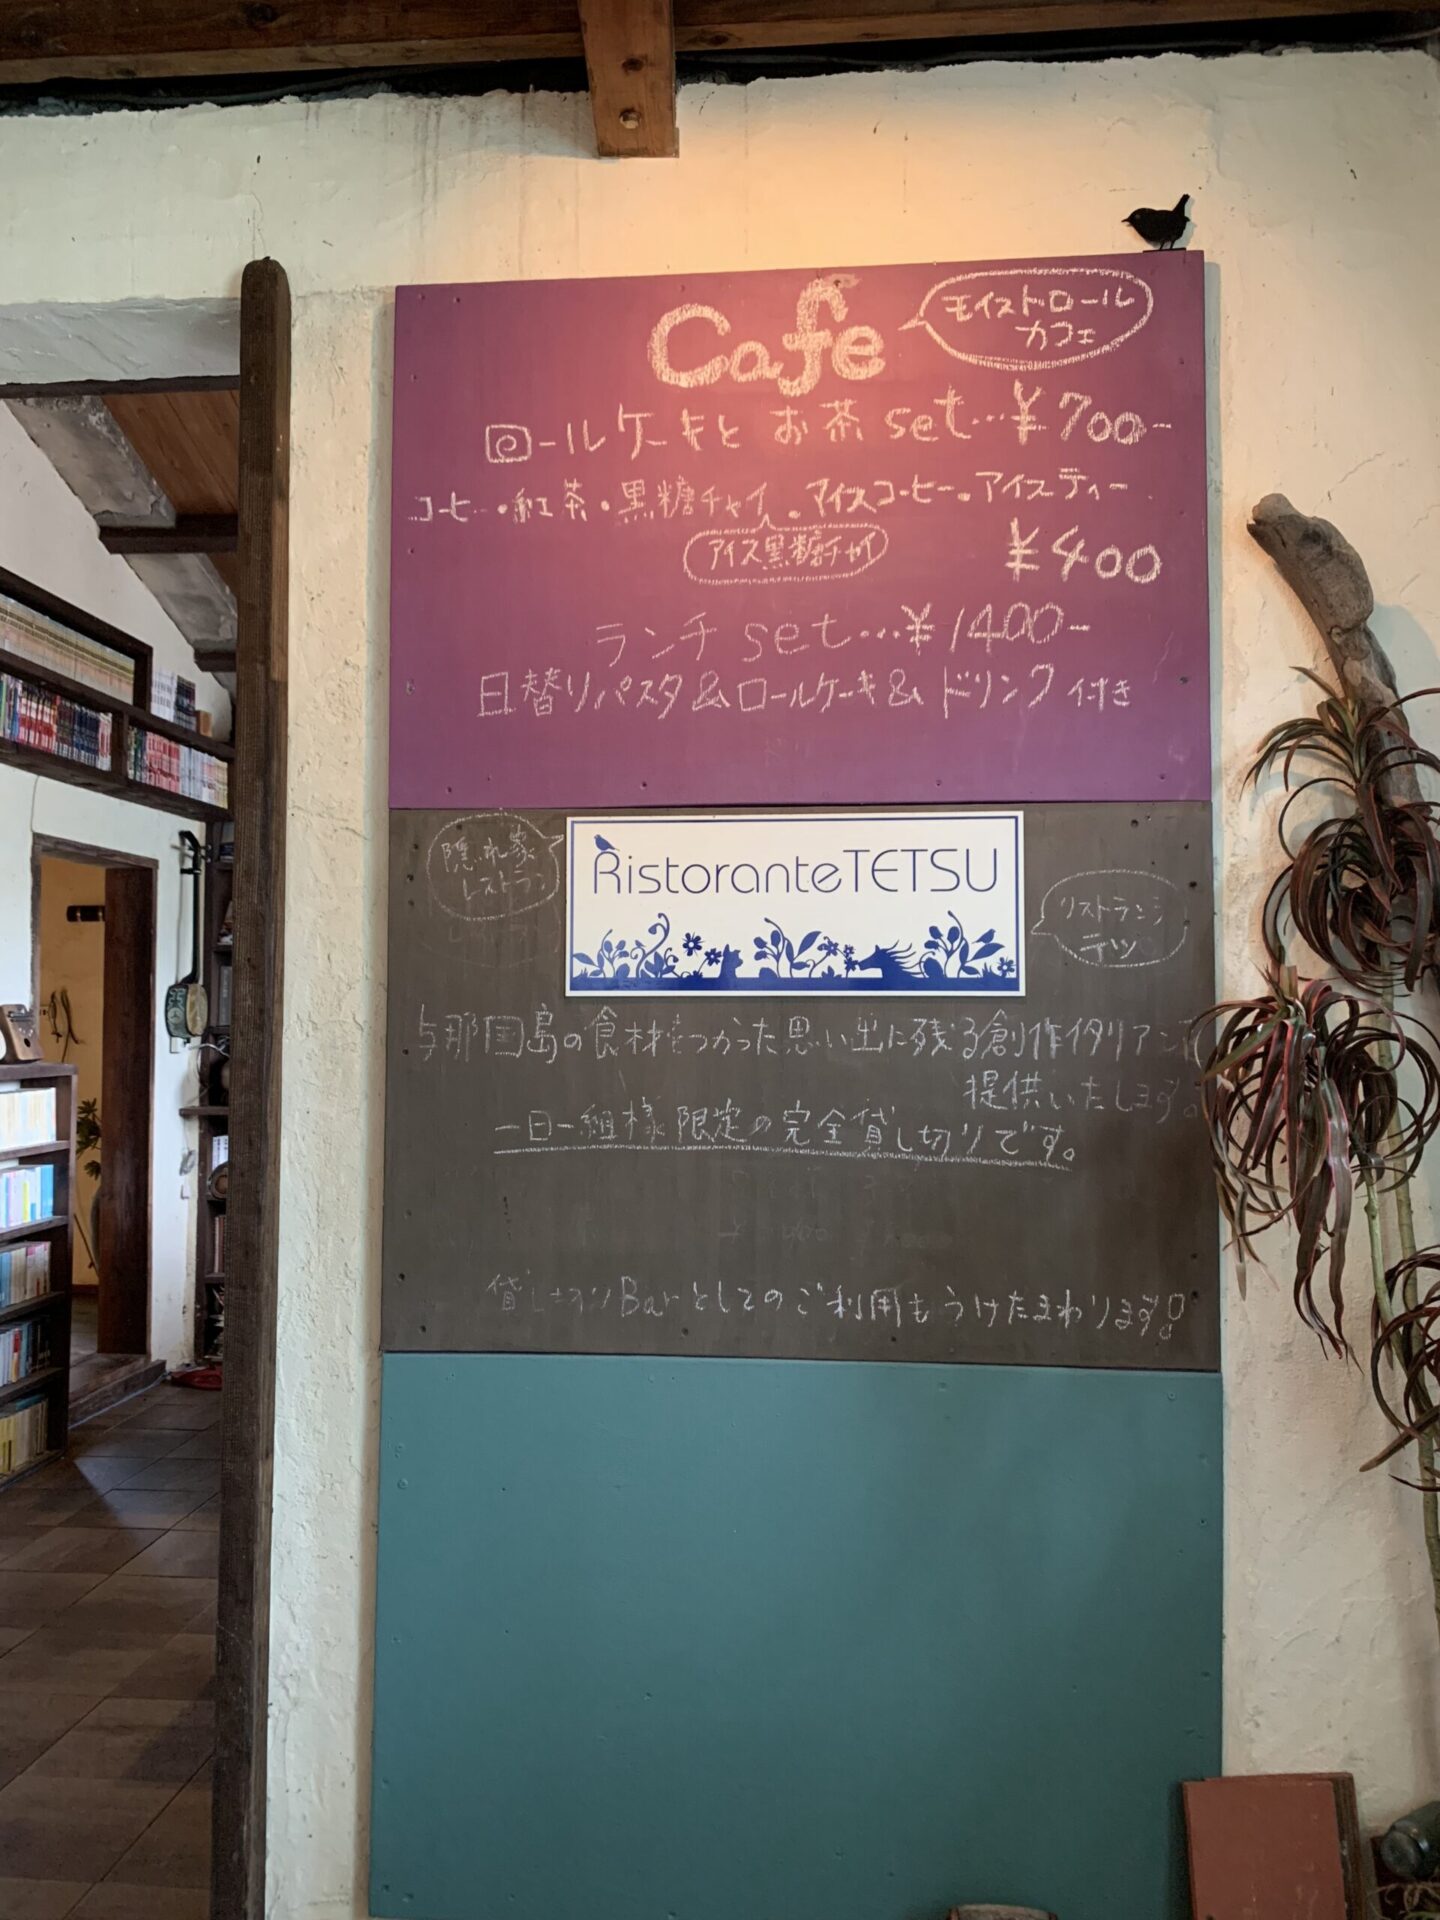 Cafe
モイストロール
カフェ
ロールケーキと お茶 set…¥700-
コーヒー・紅茶・黒糖チャイ・アイスコーヒー・アイスティー
アイス黒糖チャイ
¥400
ランチ set…¥1400-
日替りパスタ&ロールケーキ&ドリンク付き
隠れ家
レストラン
Ristorante TETSU
リストランテ
テツ
与那国島の食材をつかった思い出に残る創作イタリアン
提供いたします。
一日一組様限定の完全貸し切りです。
貸し切りBarとしてのご利用もうけたまわります!